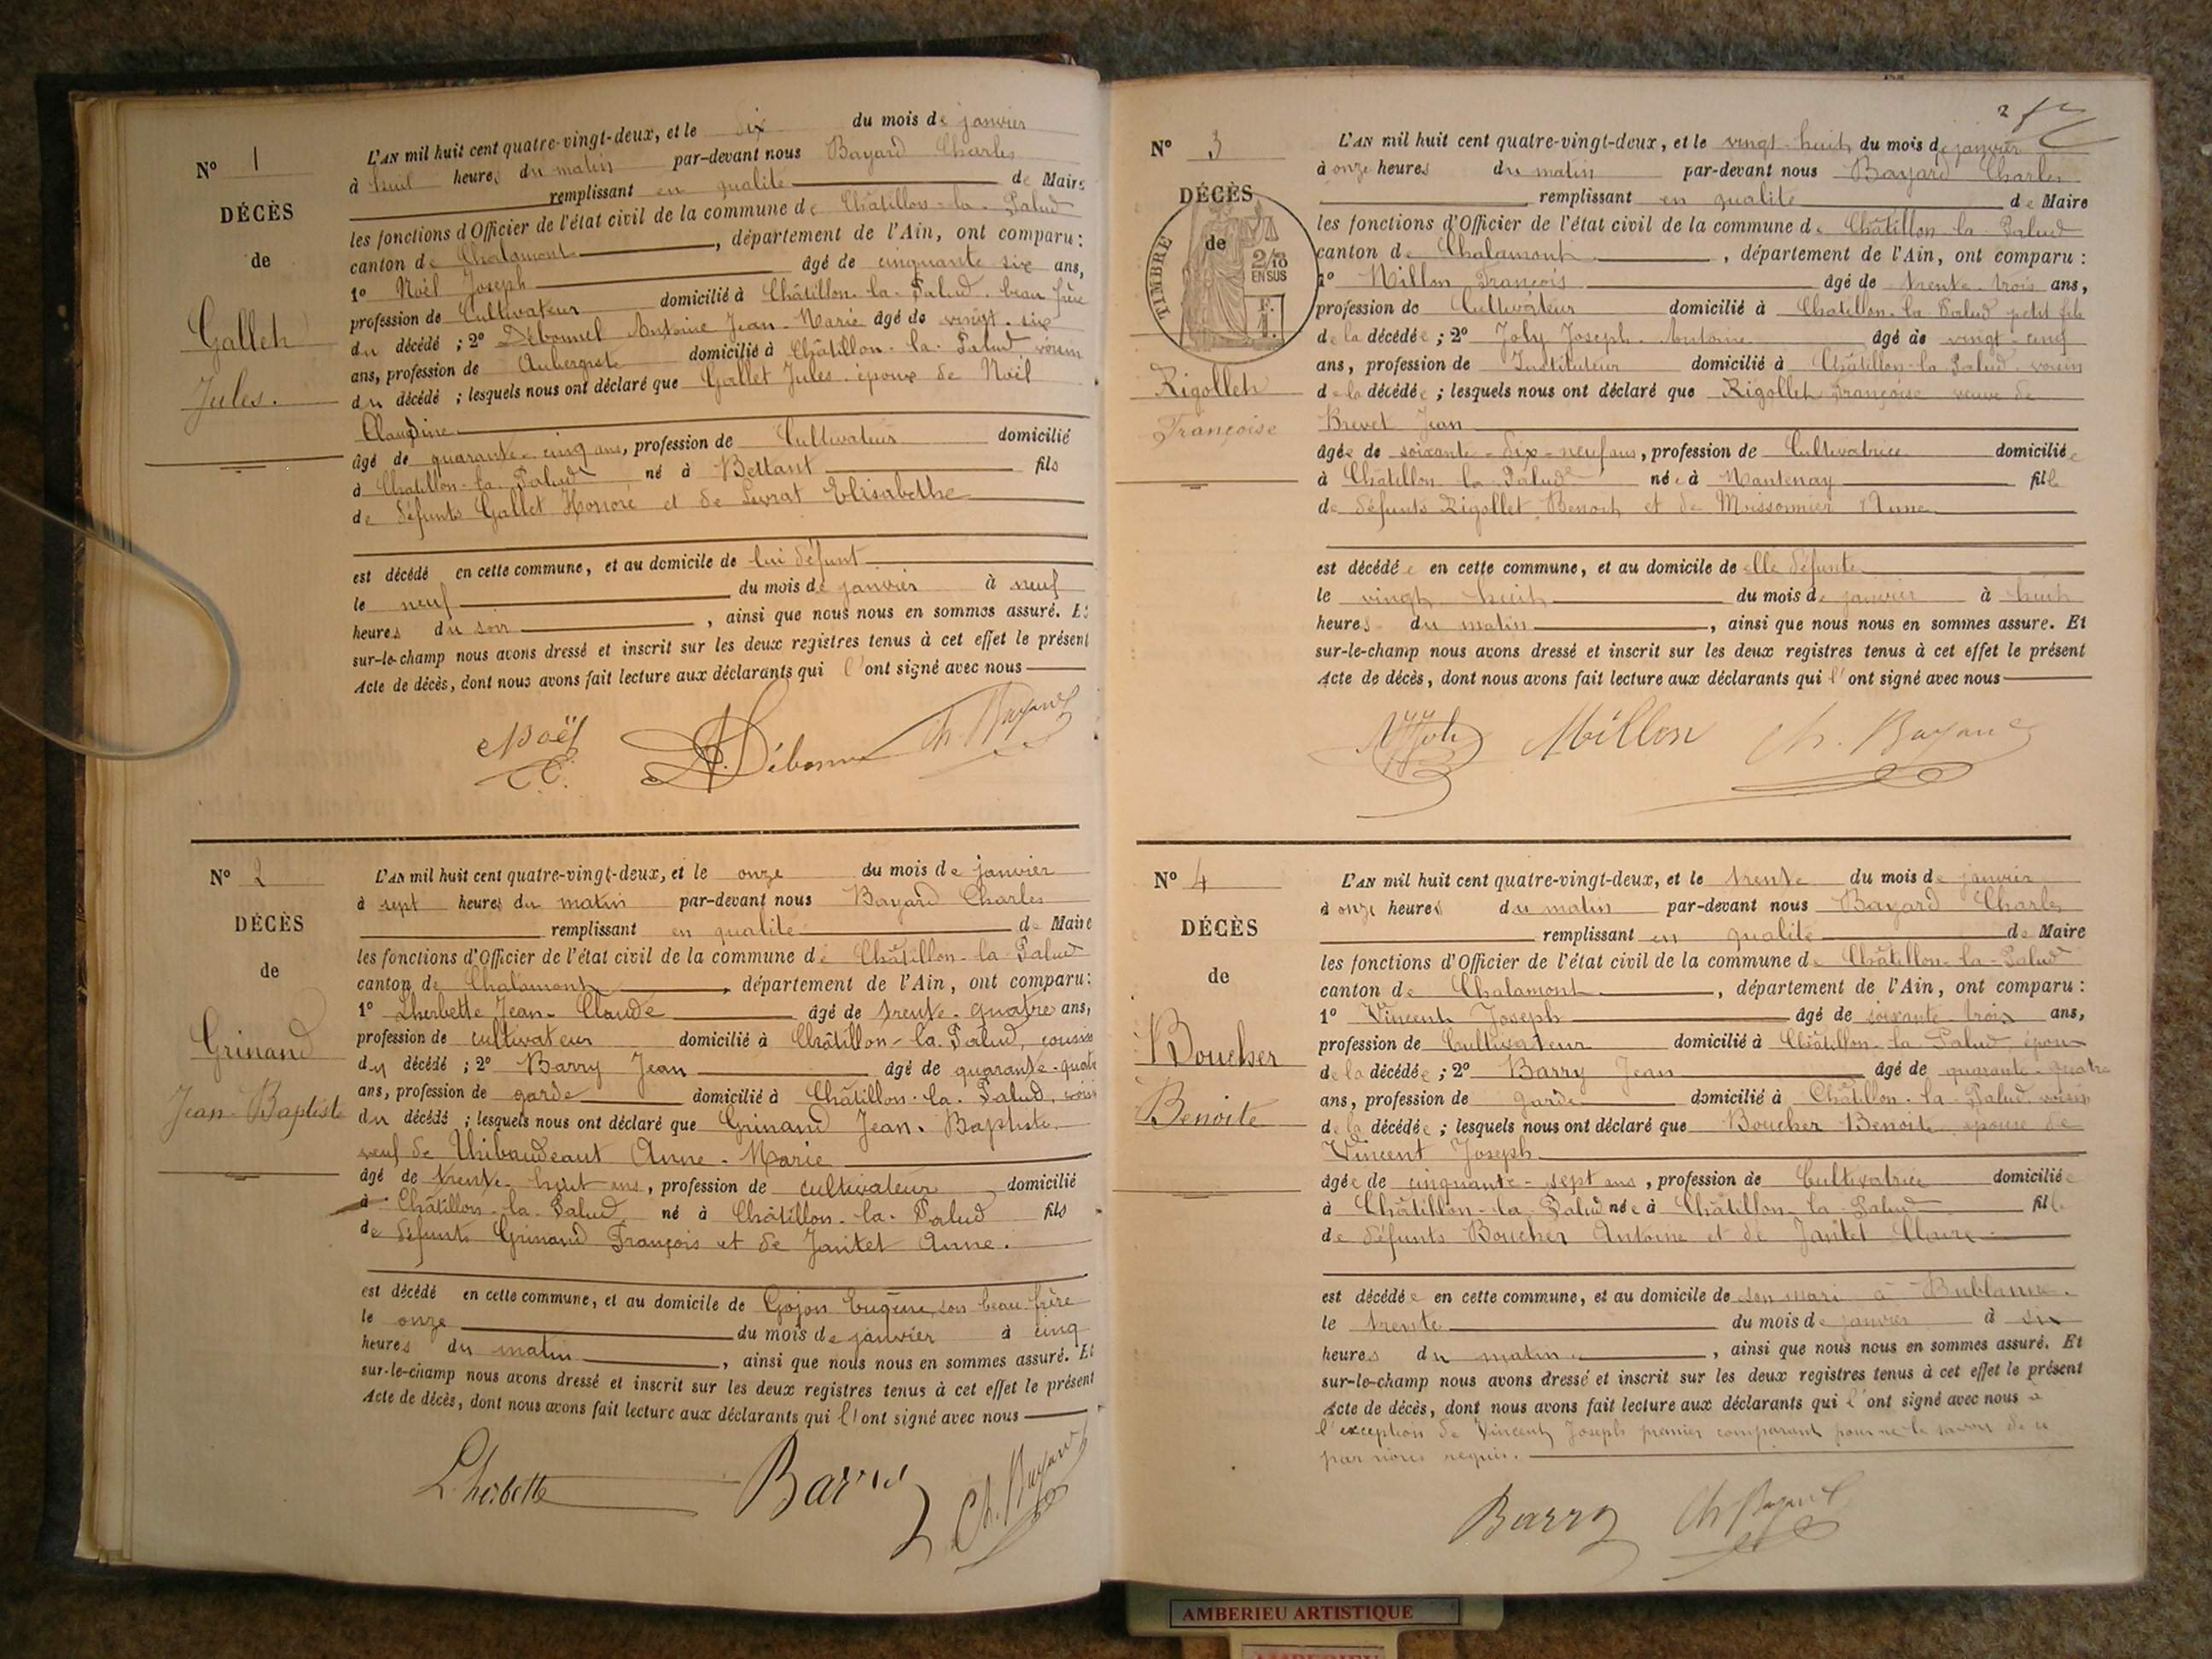 N° 1
DÉCÈS
de
Gallet
Jules.
L'AN mil huit cent quatre-vingt-deux, et le dix du mois de janvier
à huit heures du matin par-devant nous Bayard Charles
remplissant en qualité de Maire
les fonctions d'Officier de l'état civil de la commune de Châtillon-la-Palud
canton de Chalamont, département de l'Ain, ont comparu :
1° Noël Joseph âgé de cinquante six ans,
profession de Cultivateur domicilié à Châtillon-la-Palud, beau frère
du décédé ; 2° Débonnel Antoine Jean-Marie âgé de vingt-six
ans, profession de Aubergiste domicilié à Châtillon-la-Palud voisin
du décédé ; lesquels nous ont déclaré que Gallet Jules époux de Noël
Claudine
âgé de quarante-cinq ans, profession de Cultivateur domicilié
à Châtillon-la-Palud né à Bettant fils
de défunts Gallet Honoré et de Levrat Elisabethe
est décédé en cette commune, et au domicile de lui défunt
le neuf du mois de janvier à neuf
heures du soir, ainsi que nous nous en sommes assuré. Et
sur-le-champ nous avons dressé et inscrit sur les deux registres tenus à cet effet le présent
Acte de décès, dont nous avons fait lecture aux déclarants qui l'ont signé avec nous
Noël Débonne Ch. Bayard
N° 2
DÉCÈS
de
Grinand
Jean-Baptiste
L'AN mil huit cent quatre-vingt-deux, et le onze du mois de janvier
à sept heures du matin par-devant nous Bayard Charles
remplissant en qualité de Maire
les fonctions d'Officier de l'état civil de la commune de Châtillon-la-Palud
canton de Chalamont, département de l'Ain, ont comparu :
1° Lherbette Jean-Claude âgé de trente-quatre ans,
profession de cultivateur domicilié à Châtillon-la-Palud, cousin
du décédé ; 2° Barry Jean âgé de quarante-quatre
ans, profession de garde domicilié à Châtillon-la-Palud, voisin
du décédé ; lesquels nous ont déclaré que Grinand Jean-Baptiste
veuf de Thibaudeaut Anne-Marie
âgé de trente-huit ans, profession de cultivateur domicilié
à Châtillon-la-Palud né à Châtillon-la-Palud fils
de défunts Grinand François et de Jantet Anne.
est décédé en cette commune, et au domicile de Gojon Eugène, son beau-frère
le onze du mois de janvier à cinq
heures du matin, ainsi que nous nous en sommes assuré. Et
sur-le-champ nous avons dressé et inscrit sur les deux registres tenus à cet effet le présent
Acte de décès, dont nous avons fait lecture aux déclarants qui l'ont signé avec nous
Lherbette Barry Ch. Bayard
2
N° 3
DÉCÈS
de
TIMBRE
2/10
EN SUS
F.
1.
Rigollet
Françoise
L'AN mil huit cent quatre-vingt-deux, et le vingt-huit du mois de janvier
à onze heures du matin par-devant nous Bayard Charles
remplissant en qualité de Maire
les fonctions d'Officier de l'état civil de la commune de Châtillon-la-Palud
canton de Chalamont, département de l'Ain, ont comparu :
1° Millon François âgé de trente-trois ans,
profession de Cultivateur domicilié à Châtillon-la-Palud petit fils
de la décédée ; 2° Joly Joseph-Antoine âgé de vingt-cinq
ans, profession de Instituteur domicilié à Châtillon-la-Palud voisin
de la décédée ; lesquels nous ont déclaré que Rigollet Françoise veuve de
Brevet Jean
âgée de soixante-dix-neuf ans, profession de Cultivatrice domiciliée
à Châtillon-la-Palud née à Mantenay fille
de défunts Rigollet Benoit et de Moissonnier Anne
est décédée en cette commune, et au domicile de elle défunte
le vingt huit du mois de janvier à huit
heures du matin, ainsi que nous nous en sommes assuré. Et
sur-le-champ nous avons dressé et inscrit sur les deux registres tenus à cet effet le présent
Acte de décès, dont nous avons fait lecture aux déclarants qui l'ont signé avec nous
Millon Ch. Bayard
N° 4
DÉCÈS
de
Boucher
Benoite
L'AN mil huit cent quatre-vingt-deux, et le trente du mois de janvier
à onze heures du matin par-devant nous Bayard Charles
remplissant en qualité de Maire
les fonctions d'Officier de l'état civil de la commune de Châtillon-la-Palud
canton de Chalamont, département de l'Ain, ont comparu :
1° Vincent Joseph âgé de soixante-trois ans,
profession de Cultivateur domicilié à Châtillon-la-Palud, époux
de la décédée ; 2° Barry Jean âgé de quarante-quatre
ans, profession de garde domicilié à Châtillon-la-Palud, voisin
de la décédée ; lesquels nous ont déclaré que Boucher Benoite épouse de
Vincent Joseph
âgée de cinquante-sept ans, profession de Cultivatrice domiciliée
à Châtillon-la-Palud née à Châtillon-la-Palud fille
de défunts Boucher Antoine et de Jantet Claire
est décédée en cette commune, et au domicile de son mari à Bublanne.
le trente du mois de janvier à six
heures du matin, ainsi que nous nous en sommes assuré. Et
sur-le-champ nous avons dressé et inscrit sur les deux registres tenus à cet effet le présent
Acte de décès, dont nous avons fait lecture aux déclarants qui l'ont signé avec nous à
l'exception de Vincent Joseph premier comparant pour ne le savoir de ce
par nous requis.
Barry Ch Bayard
AMBERIEU ARTISTIQUE
AMBERIEU